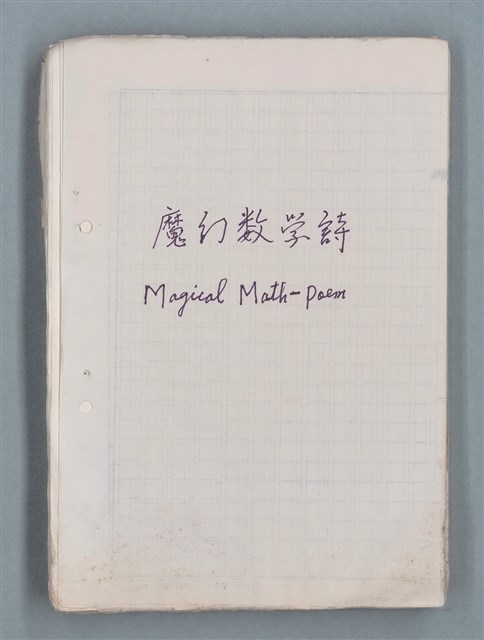 魔幻数学詩
Magical Math-poem